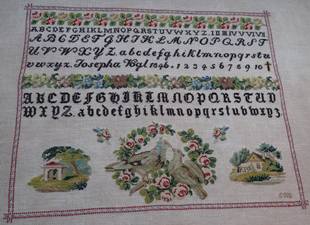 ABCDEFGHIJKLMNOPQRSTUVWXYZ.
ABCDEFGHIJKLMNOPQRST
UVWXYZ abcdefghiklmnopqrstu
vwxyz. Josepha Vogl 1846. 1 2 3 4 5 6 7 8 9 10 †
ABCDEFGHIJKLMNOPQRSTUV
WXYZ. abcdefghijklmnopqrstuvwxyz